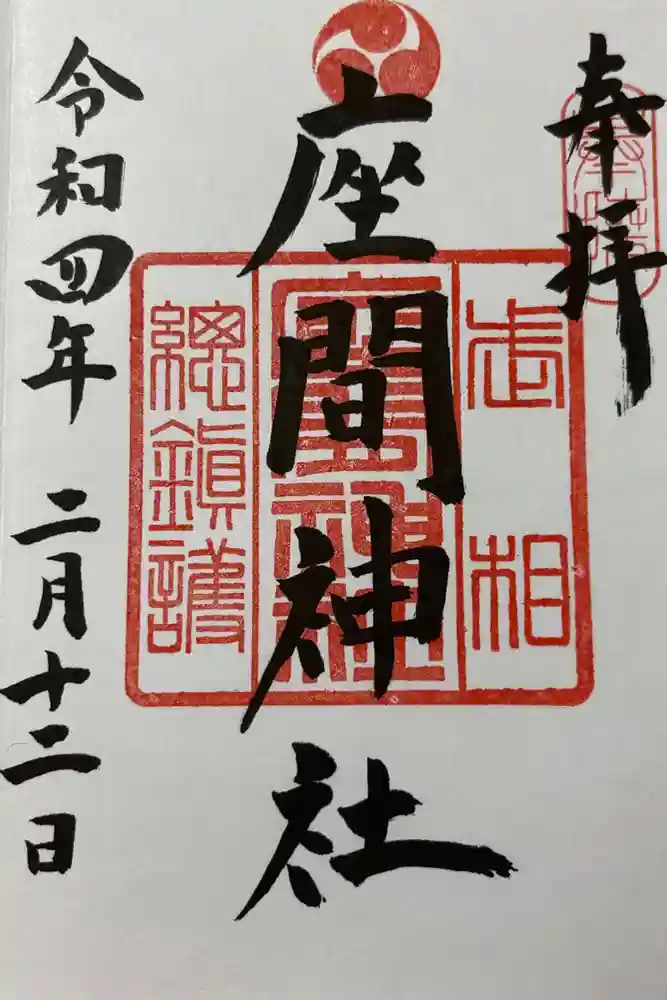 奉拝
奉拝
武相
座間神社
座間神社
総鎮護
令和四年 二月十二日